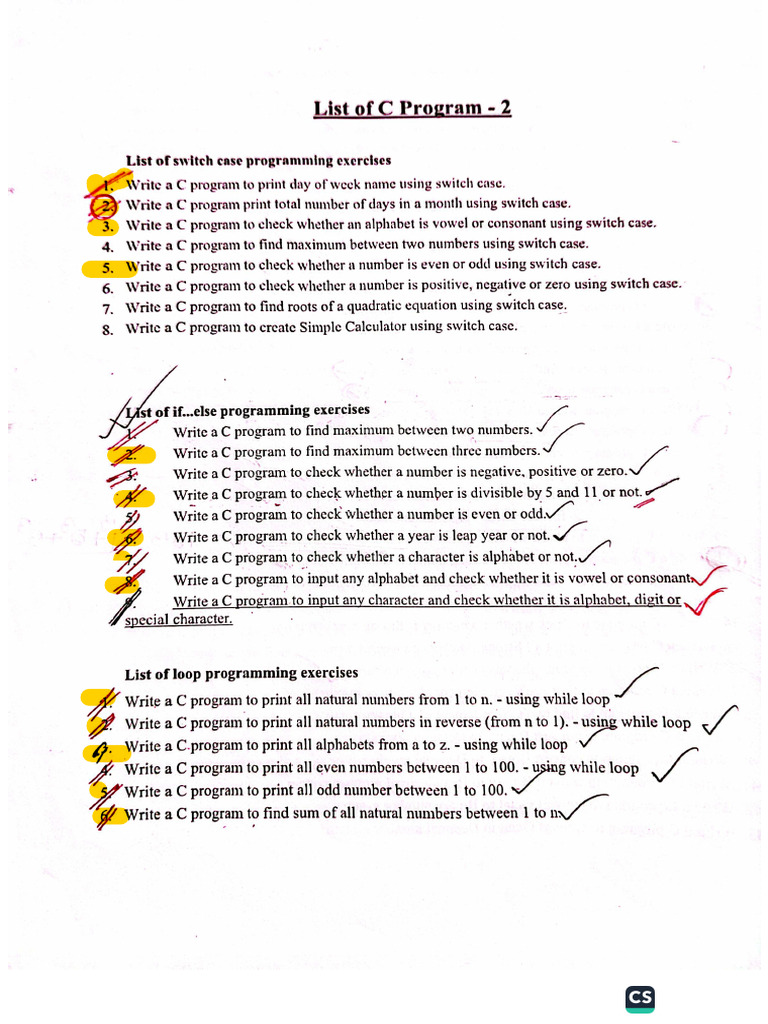 List of C Program - 2
List of switch case programming exercises
1. Write a C program to print day of week name using switch case.
2. Write a C program print total number of days in a month using switch case.
3. Write a C program to check whether an alphabet is vowel or consonant using switch case.
4. Write a C program to find maximum between two numbers using switch case.
5. Write a C program to check whether a number is even or odd using switch case.
6. Write a C program to check whether a number is positive, negative or zero using switch case.
7. Write a C program to find roots of a quadratic equation using switch case.
8. Write a C program to create Simple Calculator using switch case.
List of if...else programming exercises
1. Write a C program to find maximum between two numbers.
2. Write a C program to find maximum between three numbers.
3. Write a C program to check whether a number is negative, positive or zero.
4. Write a C program to check whether a number is divisible by 5 and 11 or not.
5. Write a C program to check whether a number is even or odd.
6. Write a C program to check whether a year is leap year or not.
7. Write a C program to check whether a character is alphabet or not.
8. Write a C program to input any alphabet and check whether it is vowel or consonant.
9. Write a C program to input any character and check whether it is alphabet, digit or
special character.
List of loop programming exercises
1. Write a C program to print all natural numbers from 1 to n. - using while loop
2. Write a C program to print all natural numbers in reverse (from n to 1). - using while loop
3. Write a C program to print all alphabets from a to z. - using while loop
4. Write a C program to print all even numbers between 1 to 100. - using while loop
5. Write a C program to print all odd number between 1 to 100.
6. Write a C program to find sum of all natural numbers between 1 to n.
CS